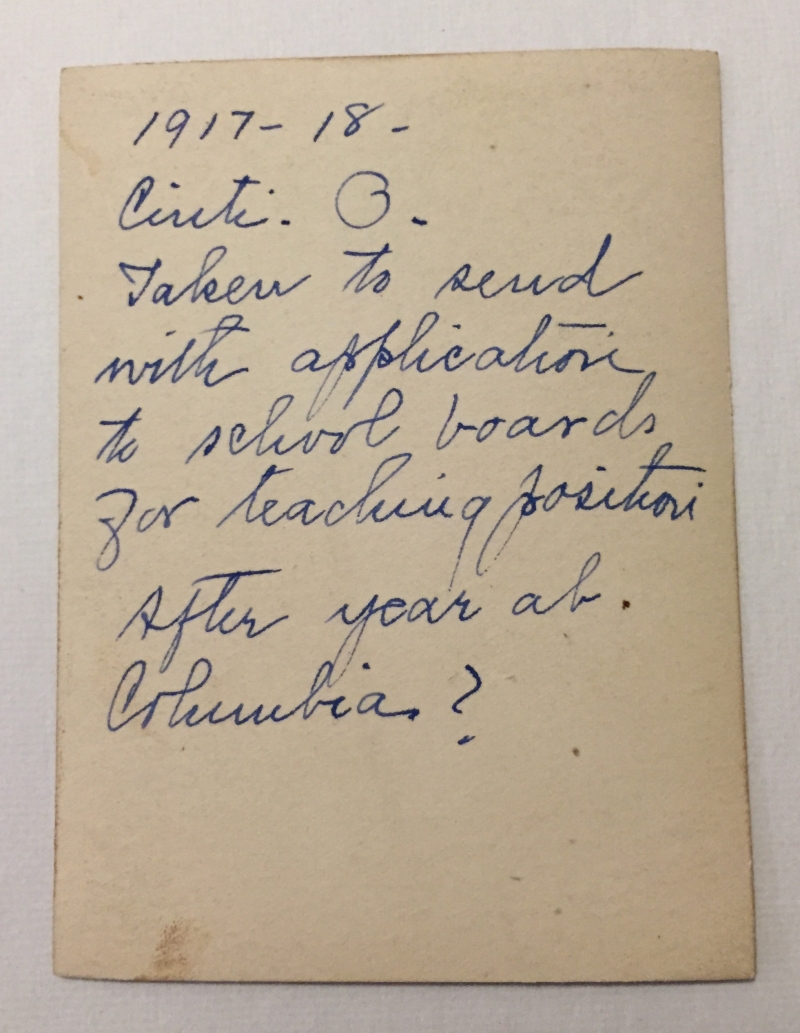 1917-18-
Cinti. O.
Taken to send
with application
to school boards
for teaching position
after year at
Columbia?